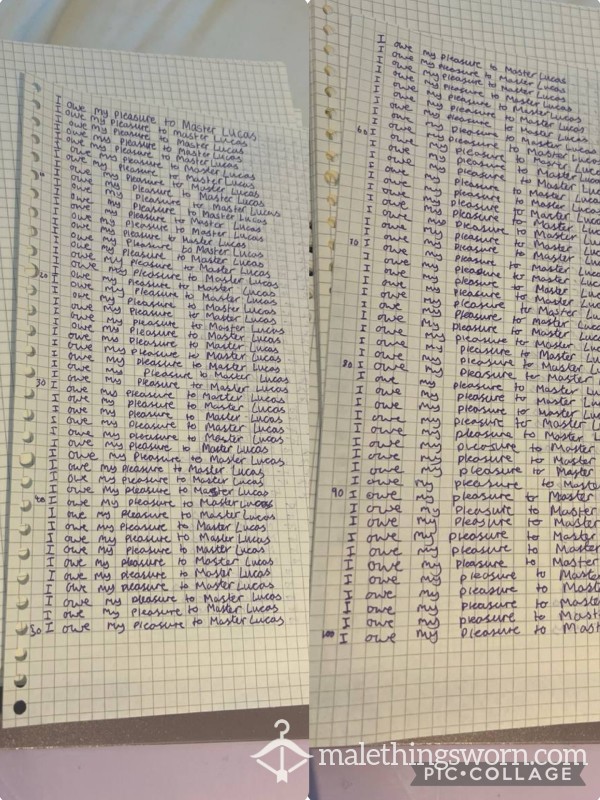 I owe my pleasure to Master Lucas
I owe my pleasure to Master Lucas
I owe my pleasure to Master Lucas
I owe my pleasure to Master Lucas
I owe my pleasure to Master Lucas
I owe my pleasure to Master Lucas
I owe my pleasure to Master Lucas
I owe my pleasure to Master Lucas
I owe my pleasure to Master Lucas
10 I owe my pleasure to Master Lucas
I owe my pleasure to Master Lucas
I owe my pleasure to Master Lucas
I owe my pleasure to Master Lucas
I owe my pleasure to Master Lucas
I owe my pleasure to Master Lucas
I owe my pleasure to Master Lucas
I owe my pleasure to Master Lucas
I owe my pleasure to Master Lucas
I owe my pleasure to Master Lucas
20 I owe my pleasure to Master Lucas
I owe my pleasure to Master Lucas
I owe my pleasure to Master Lucas
I owe my pleasure to Master Lucas
I owe my pleasure to Master Lucas
I owe my pleasure to Master Lucas
I owe my pleasure to Master Lucas
I owe my pleasure to Master Lucas
I owe my pleasure to Master Lucas
I owe my pleasure to Master Lucas
30 I owe my pleasure to Master Lucas
I owe my pleasure to Master Lucas
I owe my pleasure to Master Lucas
I owe my pleasure to Master Lucas
I owe my pleasure to Master Lucas
I owe my pleasure to Master Lucas
I owe my pleasure to Master Lucas
I owe my pleasure to Master Lucas
I owe my pleasure to Master Lucas
I owe my pleasure to Master Lucas
40 I owe my pleasure to Master Lucas
I owe my pleasure to Master Lucas
I owe my pleasure to Master Lucas
I owe my pleasure to Master Lucas
I owe my pleasure to Master Lucas
I owe my pleasure to Master Lucas
I owe my pleasure to Master Lucas
I owe my pleasure to Master Lucas
I owe my pleasure to Master Lucas
I owe my pleasure to Master Lucas
50 I owe my pleasure to Master Lucas
I owe my pleasure to Master Lucas
I owe my pleasure to Master Lucas
I owe my pleasure to Master Lucas
I owe my pleasure to Master Lucas
I owe my pleasure to Master Lucas
I owe my pleasure to Master Lucas
I owe my pleasure to Master Lucas
I owe my pleasure to Master Lucas
I owe my pleasure to Master Lucas
60 I owe my pleasure to Master Lucas
I owe my pleasure to Master Luca
I owe my pleasure to Master Luca
I owe my pleasure to Master Luca
I owe my pleasure to Master Luca
I owe my pleasure to Master Luc
I owe my pleasure to Master Luc
I owe my pleasure to Master Luc
I owe my pleasure to Master Luc
I owe my pleasure to Master Luc
70 I owe my pleasure to Master Luc
I owe my pleasure to Master Luc
I owe my pleasure to Master Luc
I owe my pleasure to Master Luc
I owe my pleasure to Master Luc
I owe my pleasure to Master Luc
I owe my pleasure to Master Luc
I owe my pleasure to Master Lu
I owe my pleasure to Master Lu
I owe my pleasure to Master Lu
80 I owe my pleasure to Master Lu
I owe my pleasure to Master Lu
I owe my pleasure to Master Lu
I owe my pleasure to Master Lu
I owe my pleasure to Master L
I owe my pleasure to Master L
I owe my pleasure to Master
I owe my pleasure to Master
I owe my pleasure to Master
I owe my pleasure to Master
90 I owe my pleasure to Master
I owe my pleasure to Master
I owe my pleasure to Master
I owe my pleasure to Master
I owe my pleasure to Master
I owe my pleasure to Master
I owe my pleasure to Master
I owe my pleasure to Master
I owe my pleasure to Master
I owe my pleasure to Master
100 I owe my pleasure to Mast
malethingsworn.com
PIC•COLLAGE